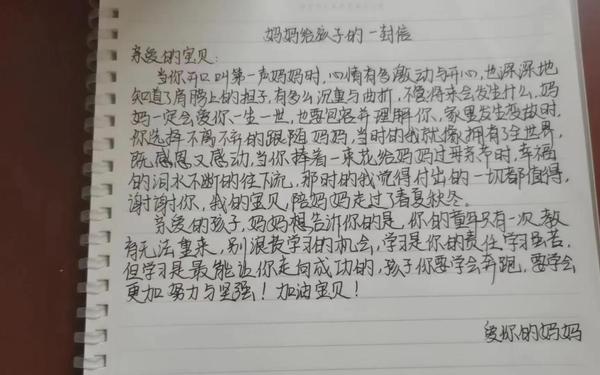 妈妈给孩子的一封信
亲爱的宝贝:
当你开口叫第一声妈妈时,心情有多激动与开心,也深深地
知道了肩膀上的担子,有多么沉重与曲折,不管将来会发生什么,妈
妈一定会爱你一生一世,也要包容并理解你,家里发生变故时,
你选择不离不弃的跟随妈妈,当时的我就像拥有了全世界,
既感恩又感动,当你捧着一束花给妈妈过母亲节时,幸福
的泪水不断的往下流,那时的我觉得付出的一切都值得,
谢谢你,我的宝贝,陪妈妈走过了春夏秋冬。
亲爱的孩子,妈妈想告诉你的是,你的童年只有一次,教
育无法重来,别浪费学习的机会,学习是你的责任,学习虽苦,
但学习是最能让你走向成功的,孩子你要学会奔跑,要学会
更加努力与坚强!加油宝贝!
爱你的妈妈